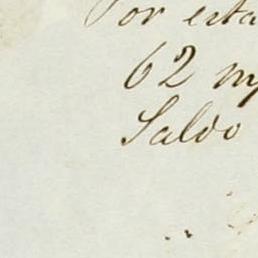 Por esta
62 m
Saldo